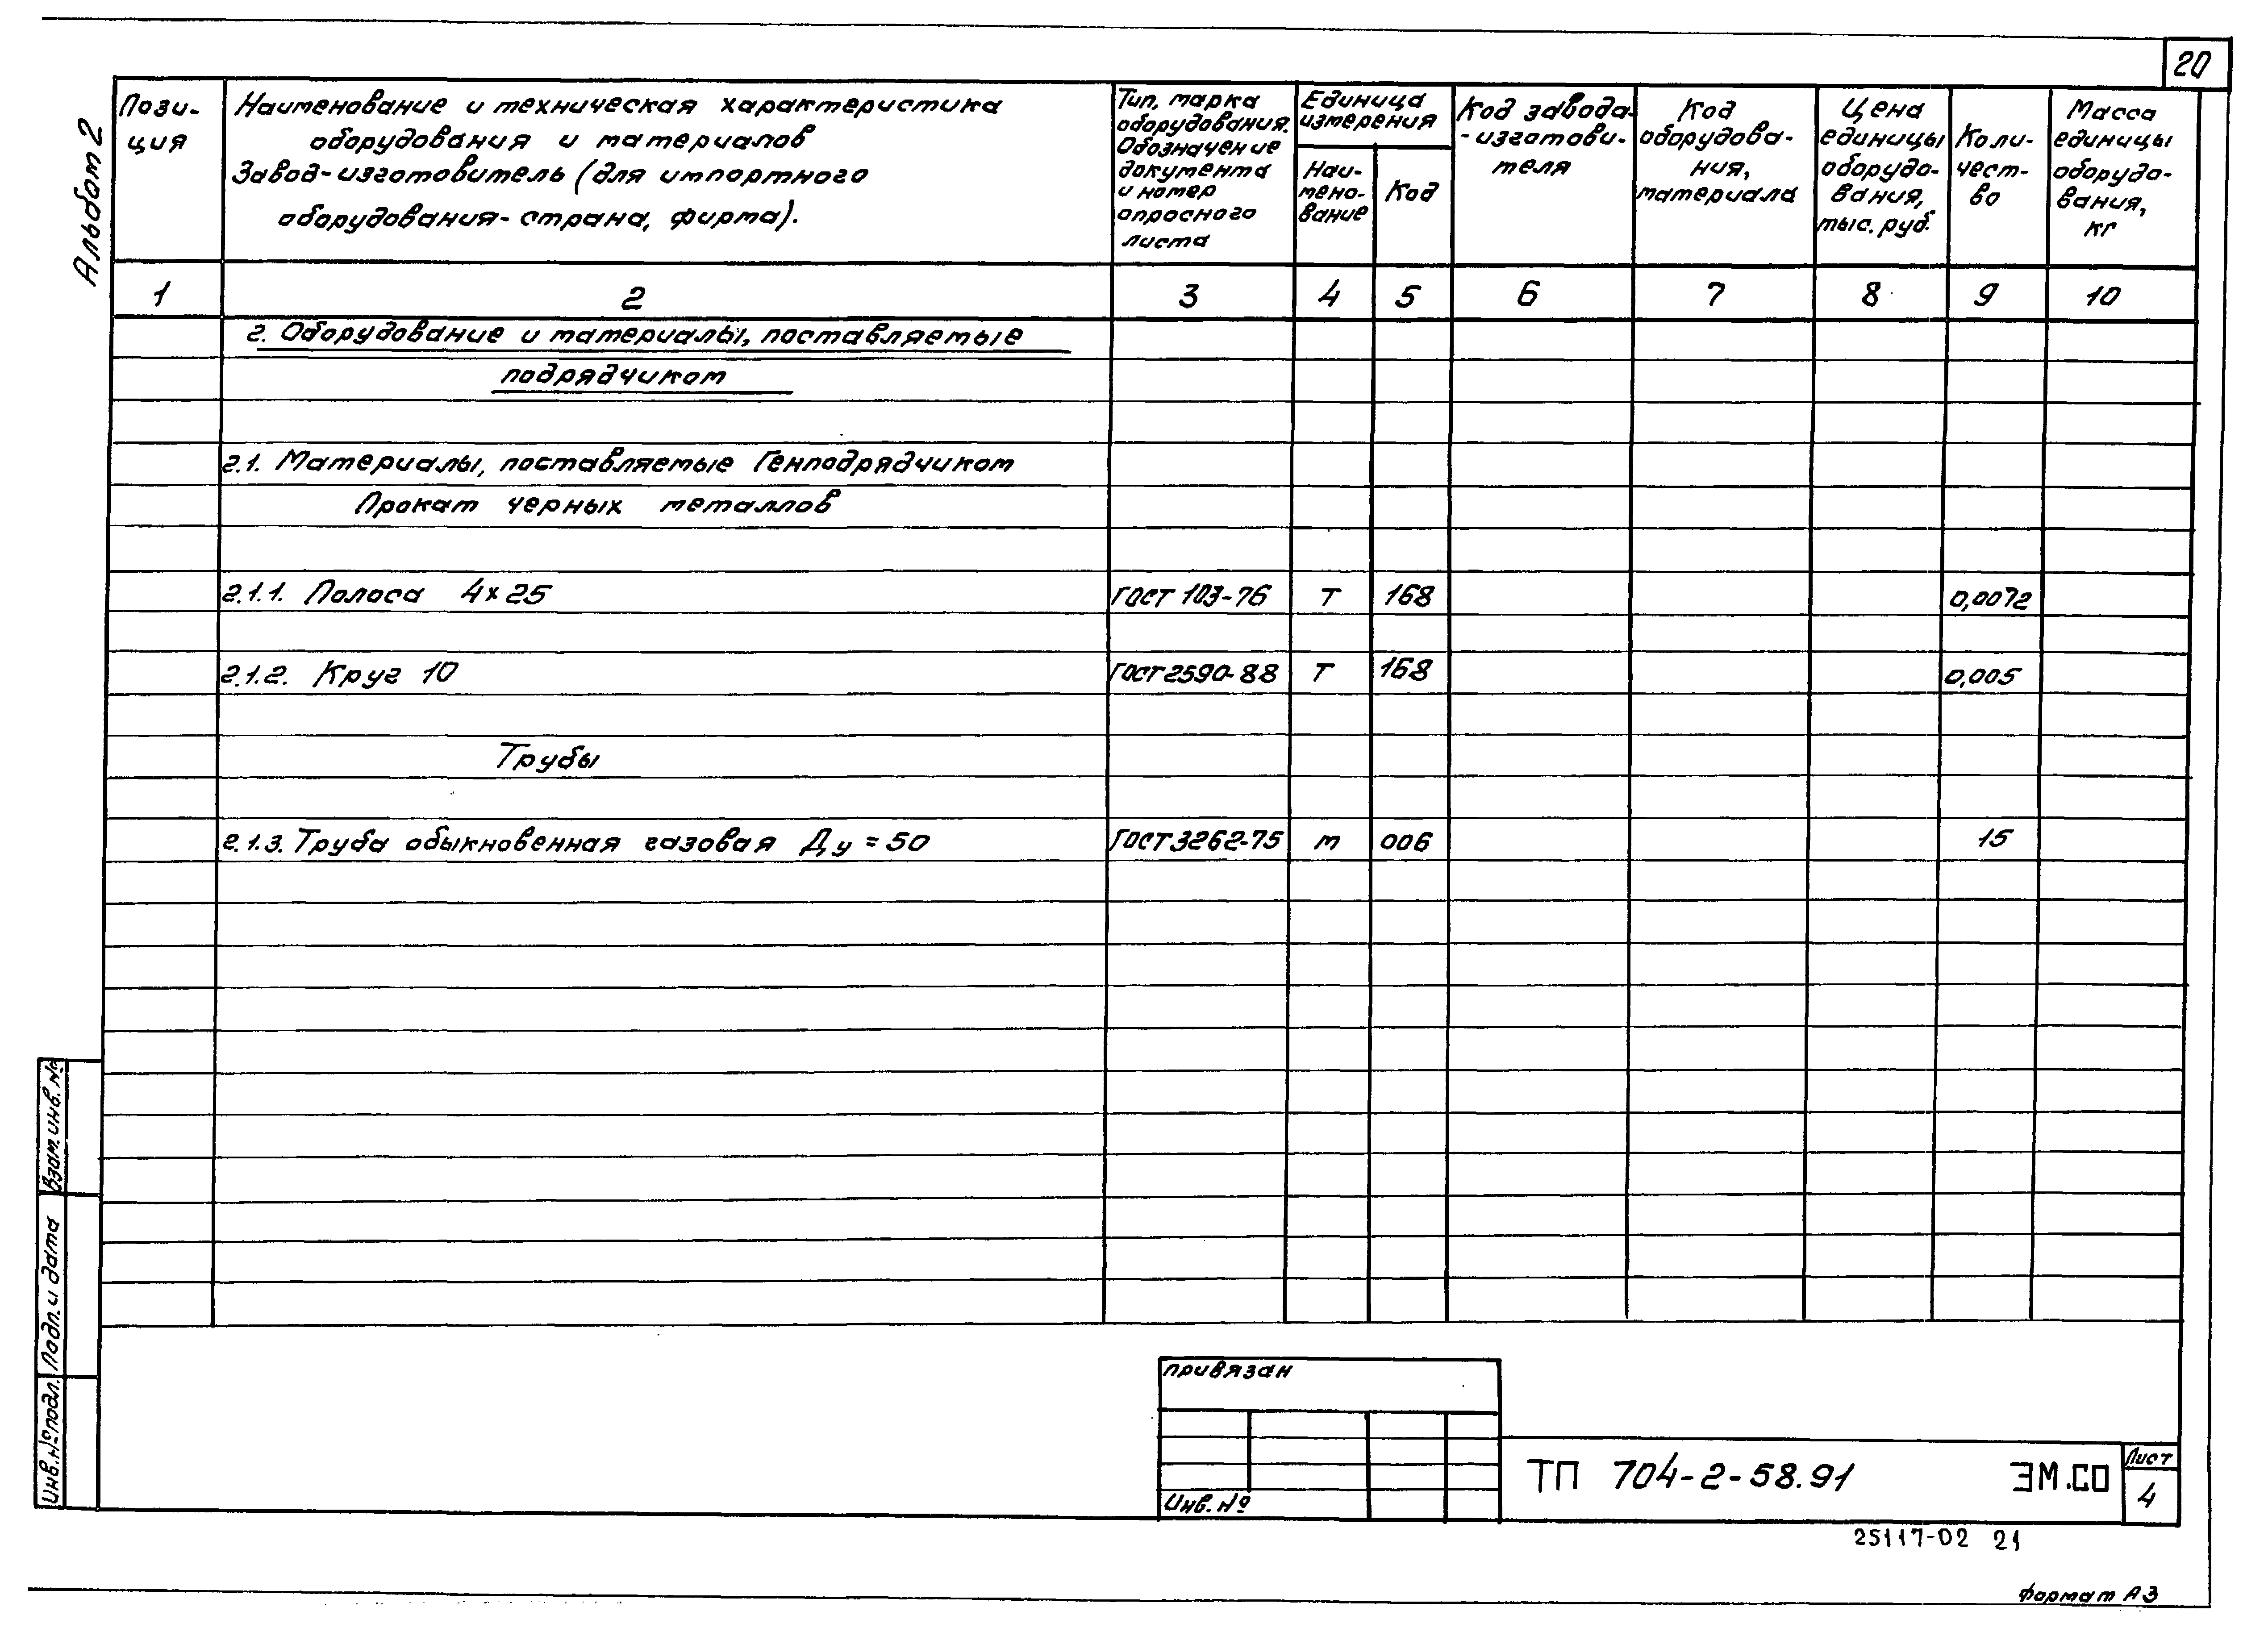 20
Альбом 2
Пози-
ция
Наименование и техническая характеристика
оборудования и материалов
Завод-изготовитель (для импортного
оборудования-страна, фирма).
Тип, марка
оборудования.
Обозначение
документа
и номер
опросного
листа
Единица
измерения
Наи-
мено-
вание
Код
Код завода-
-изготови-
теля
Код
оборудова-
ния,
материала
Цена
единицы
оборудо-
вания,
тыс. руб.
Коли-
чест-
во
Масса
единицы
оборудо-
вания,
кг
1 2 3 4 5 6 7 8 9 10
2. Оборудование и материалы, поставляемые
подрядчиком
2.1. Материалы, поставляемые Генподрядчиком
Прокат черных металлов
2.1.1. Полоса 4×25 ГОСТ 103-76 Т 168 0,0072
2.1.2. Круг 10 ГОСТ 2590-88 Т 168 0,005
Трубы
2.1.3. Труба обыкновенная газовая Ду = 50 ГОСТ 3262-75 м 006 15
Взам. инв. №
Подп. и дата
Инв. № подл.
привязан
Инв. №
ТП 704-2-58.91 ЭМ.СО
Лист
4
25117-02 21
Формат А3